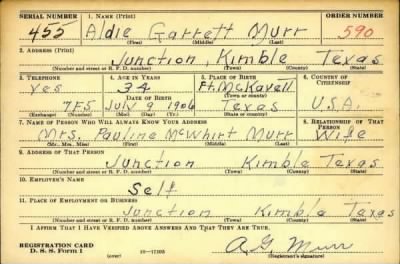 SERIAL NUMBER 1. NAME (Print) ORDER NUMBER
455 Aldie Garrett Murr 590
(First) (Middle) (Last)
2. ADDRESS (Print)
Junction, Kimble Texas
(Number and street or R. F. D. number) (Town) (County) (State)
3. TELEPHONE 4. AGE IN YEARS 5. PLACE OF BIRTH 6. COUNTRY OF CITIZENSHIP
Yes 34 Ft. McKavett
DATE OF BIRTH (Town or county)
7F5 July 9 1906 Texas U.S.A.
(Exchange) (Number) (Mo.) (Day) (Yr.) (State or country)
7. NAME OF PERSON WHO WILL ALWAYS KNOW YOUR ADDRESS 8. RELATIONSHIP OF THAT PERSON
Mrs. Pauline McWhirt Murr Wife
(Mr., Mrs., Miss) (First) (Middle) (Last)
9. ADDRESS OF THAT PERSON
Junction Kimble Texas
(Number and street or R. F. D. number) (Town) (County) (State)
10. EMPLOYER'S NAME
Self
11. PLACE OF EMPLOYMENT OR BUSINESS
Junction Kimble Texas
(Number and street or R. F. D. number) (Town) (County) (State)
I AFFIRM THAT I HAVE VERIFIED ABOVE ANSWERS AND THAT THEY ARE TRUE.
REGISTRATION CARD A. G. Murr
D. S. S. Form 1 (Registrant's signature)